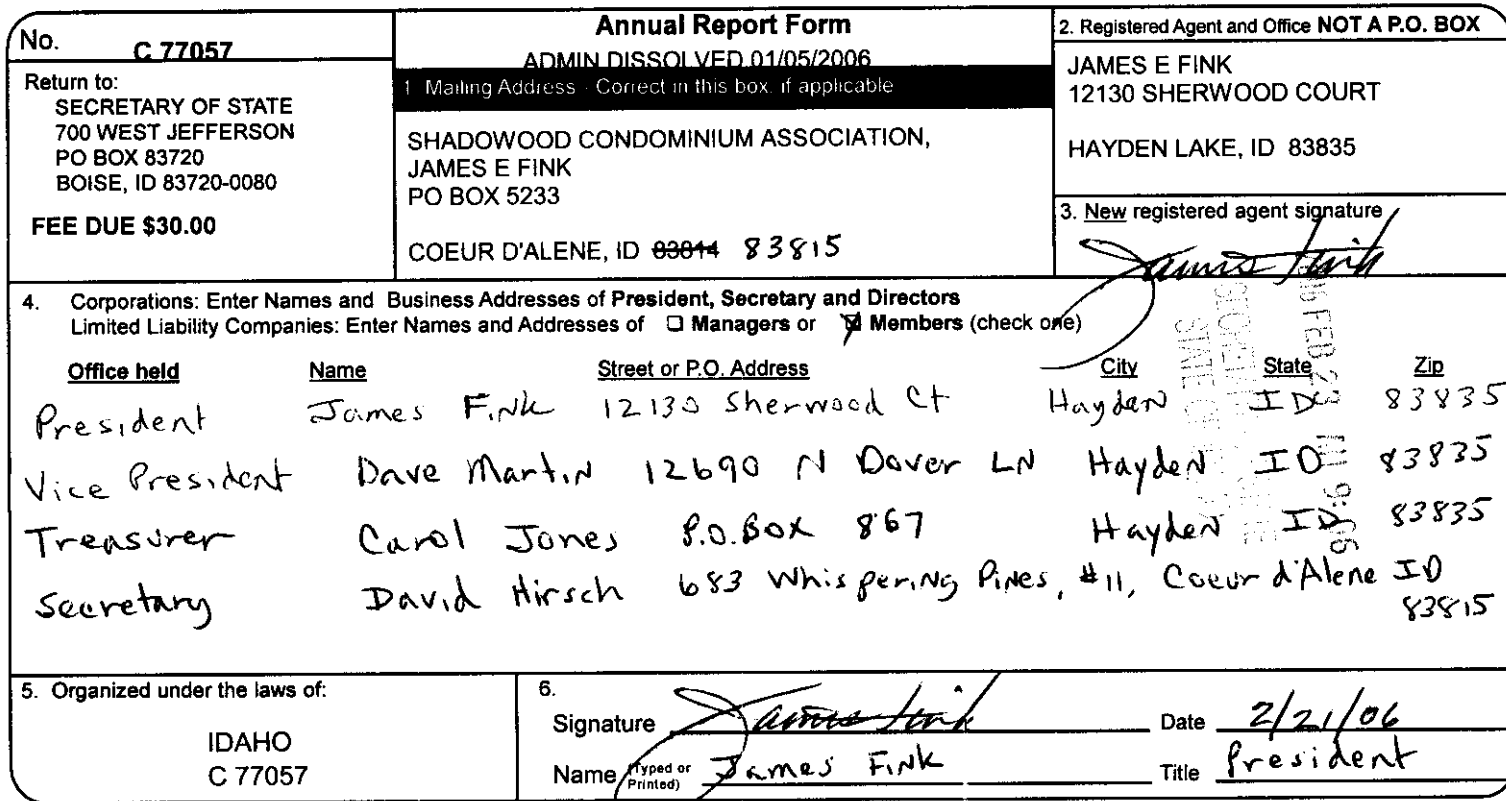 No. C 77057
Return to:
SECRETARY OF STATE
700 WEST JEFFERSON
PO BOX 83720
BOISE, ID 83720-0080
FEE DUE $30.00
Annual Report Form
ADMIN DISSOLVED 01/05/2006
1 Mailing Address - Correct in this box, if applicable
SHADOWOOD CONDOMINIUM ASSOCIATION,
JAMES E FINK
PO BOX 5233
COEUR D'ALENE, ID 83814 83815
2. Registered Agent and Office NOT A P.O. BOX
JAMES E FINK
12130 SHERWOOD COURT
HAYDEN LAKE, ID 83835
3. New registered agent signature
James Fink
4. Corporations: Enter Names and Business Addresses of President, Secretary and Directors
Limited Liability Companies: Enter Names and Addresses of Managers or Members (check one)
Office held Name Street or P.O. Address City State Zip
President James Fink 12130 Sherwood Ct Hayden ID 83835
Vice President Dave Martin 12690 N Dover LN Hayden ID 83835
Treasurer Carol Jones P.O. Box 867 Hayden ID 83835
Secretary David Hirsch 683 Whispering Pines, #11, Coeur d'Alene ID
83815
FEB 23
STATE OF
5. Organized under the laws of:
IDAHO
C 77057
6.
Signature James Fink Date 2/21/06
Name (Typed or Printed) James Fink Title President